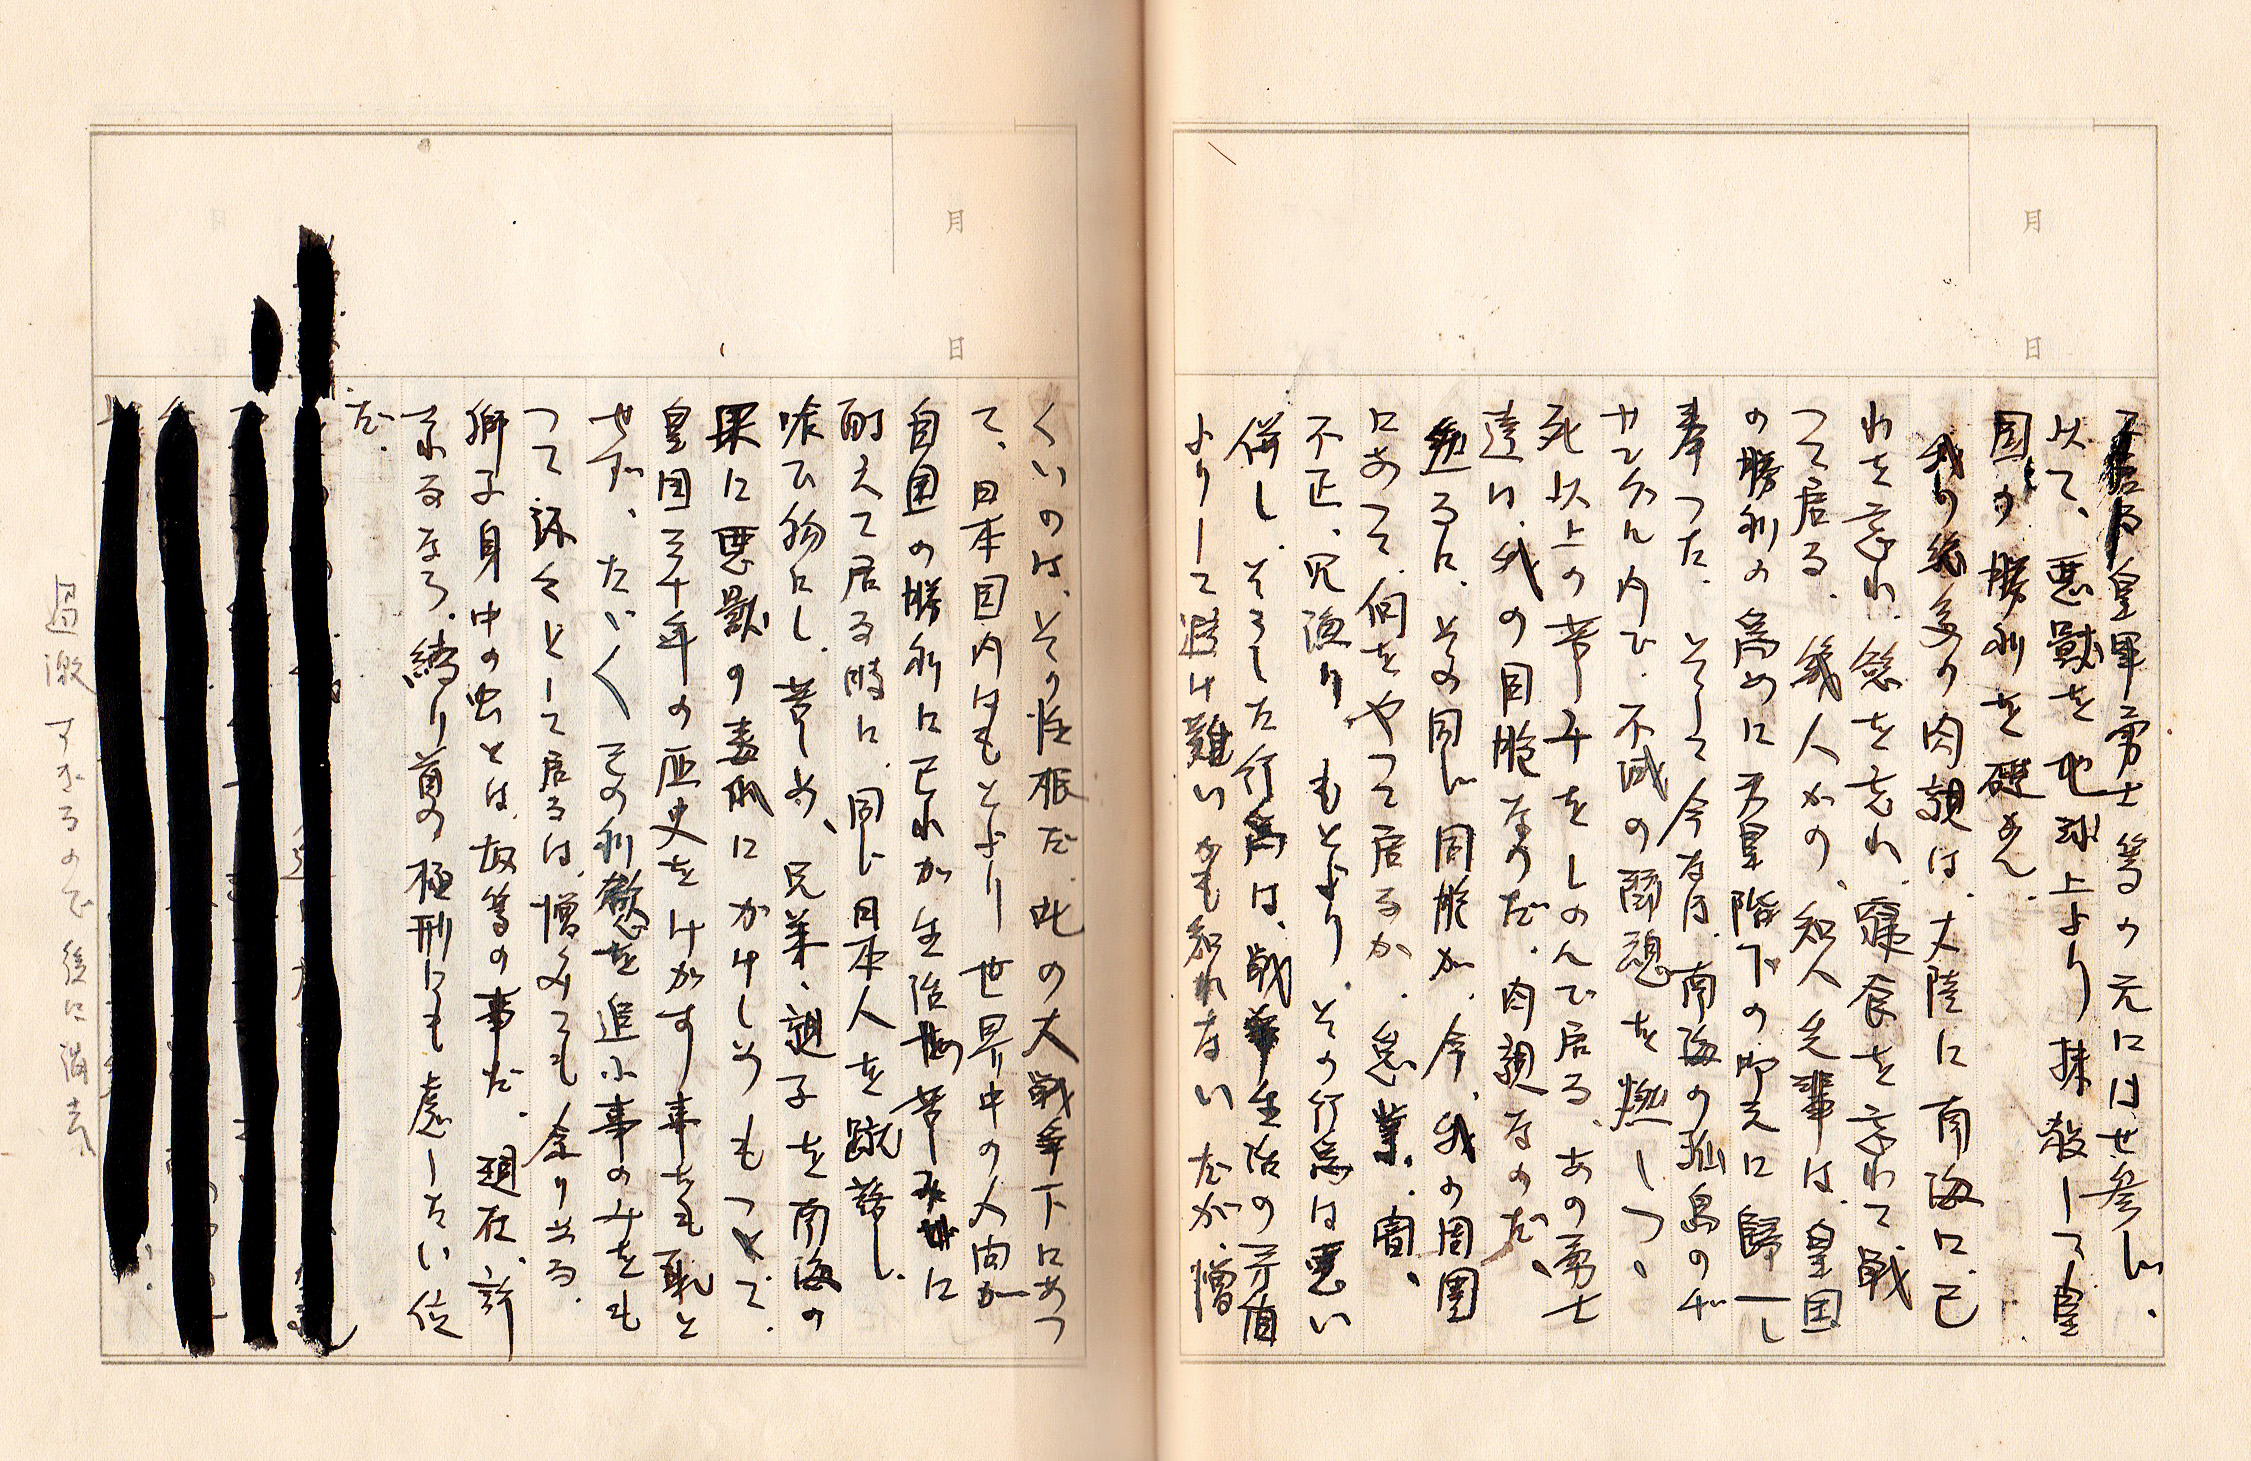 皇軍勇士等の元にはせ参じ、
以て、悪獣を地球上より抹殺して皇
国の勝利を礎めん。
我の幾多の肉親は、大陸に南海に、己
れを忘れ、慾を忘れ、寝食を忘れて戦
つて居る。幾人かの、知人先輩は、皇国
の勝利の為めに天皇陛下の御元に歸一し
奉つた。そして今なほ、南海の孤島のヂ
ヤングル内で、不滅の闘魂を燃しつゝ
死以上の苦しみをしのんで居る、あの勇士
達は、我の同胞なのだ。肉親なのだ、
るに、その同じ同胞が、今、我の周圍
にあつて、何をやつて居るか、怠業、闇、
不正、もとより、その行為は悪い
併し、そうした行為は、戦争生活の
よりして避け難いかも知れないだが、憎
月
日
くいのは、その性根だ。此の大戦争下にあつ
て、日本国内はもとより世界中の人間が
自国の勝利に己れが生活苦しみに
耐えて居る時に、同じ日本人を蹴落し、
喰ひ物にし、苦しめ、兄弟、親子を南海の
果に悪獣の毒牙にかけしめもつて、
皇国三千年の歴史をけがす事をも恥と
せず、たゞ〱その利慾を追ふ事のみをも
つて詠々として居るは、憎みても余り出る。
獅子身中の虫とは、奴等の事だ。現在、許
されるなら、縛り首の極刑にも處したい位
だ。
過激すぎるので後に消去
月
日